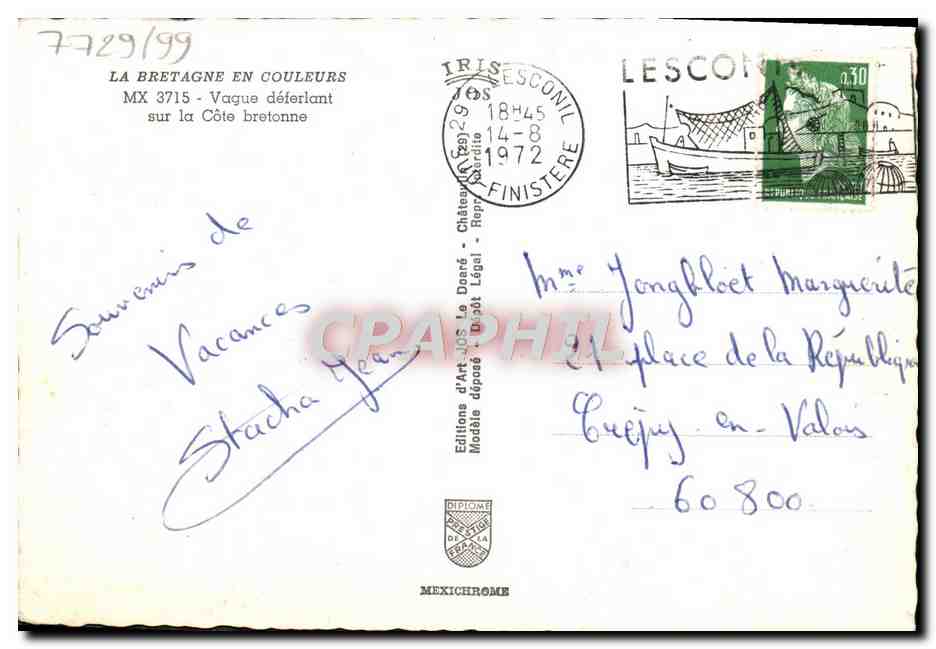 7729/99
LA BRETAGNE EN COULEURS
MX 3715 - Vague déferlant
sur la Côte bretonne
IRIS
JOS
LESCONIL
18H45
14-8
1972
29
FINISTERE
LESCONIL
0,30
FRANÇAISE
Souvenirs de
Vacances
Stacha Jean
CPAPHIL
Editions d'Art JOS Le Doaré - Châteaulin (29)
Modèle déposé - Dépôt Légal - Repr. Interdite
Mme Jongbloet Marguerite
21 place de la République
Crépy-en-Valois
60 800
DIPLOME
PRESTIGE
DE LA
FRANCE
MEXICHROME